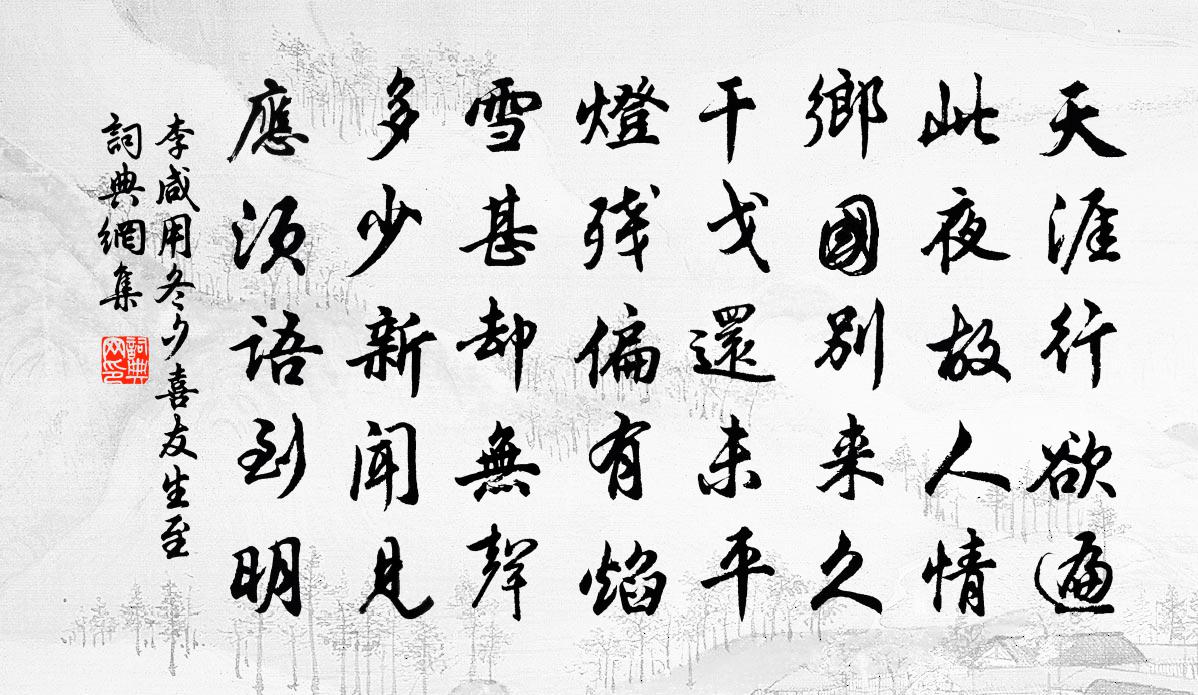 天涯行欲遍
此夜故人情
鄉國別来久
干戈還未平
燈残偏有焰
雪甚却無聲
多少新聞見
應須語到明
李咸用冬夕喜友生至
詞典網集
詞典网印